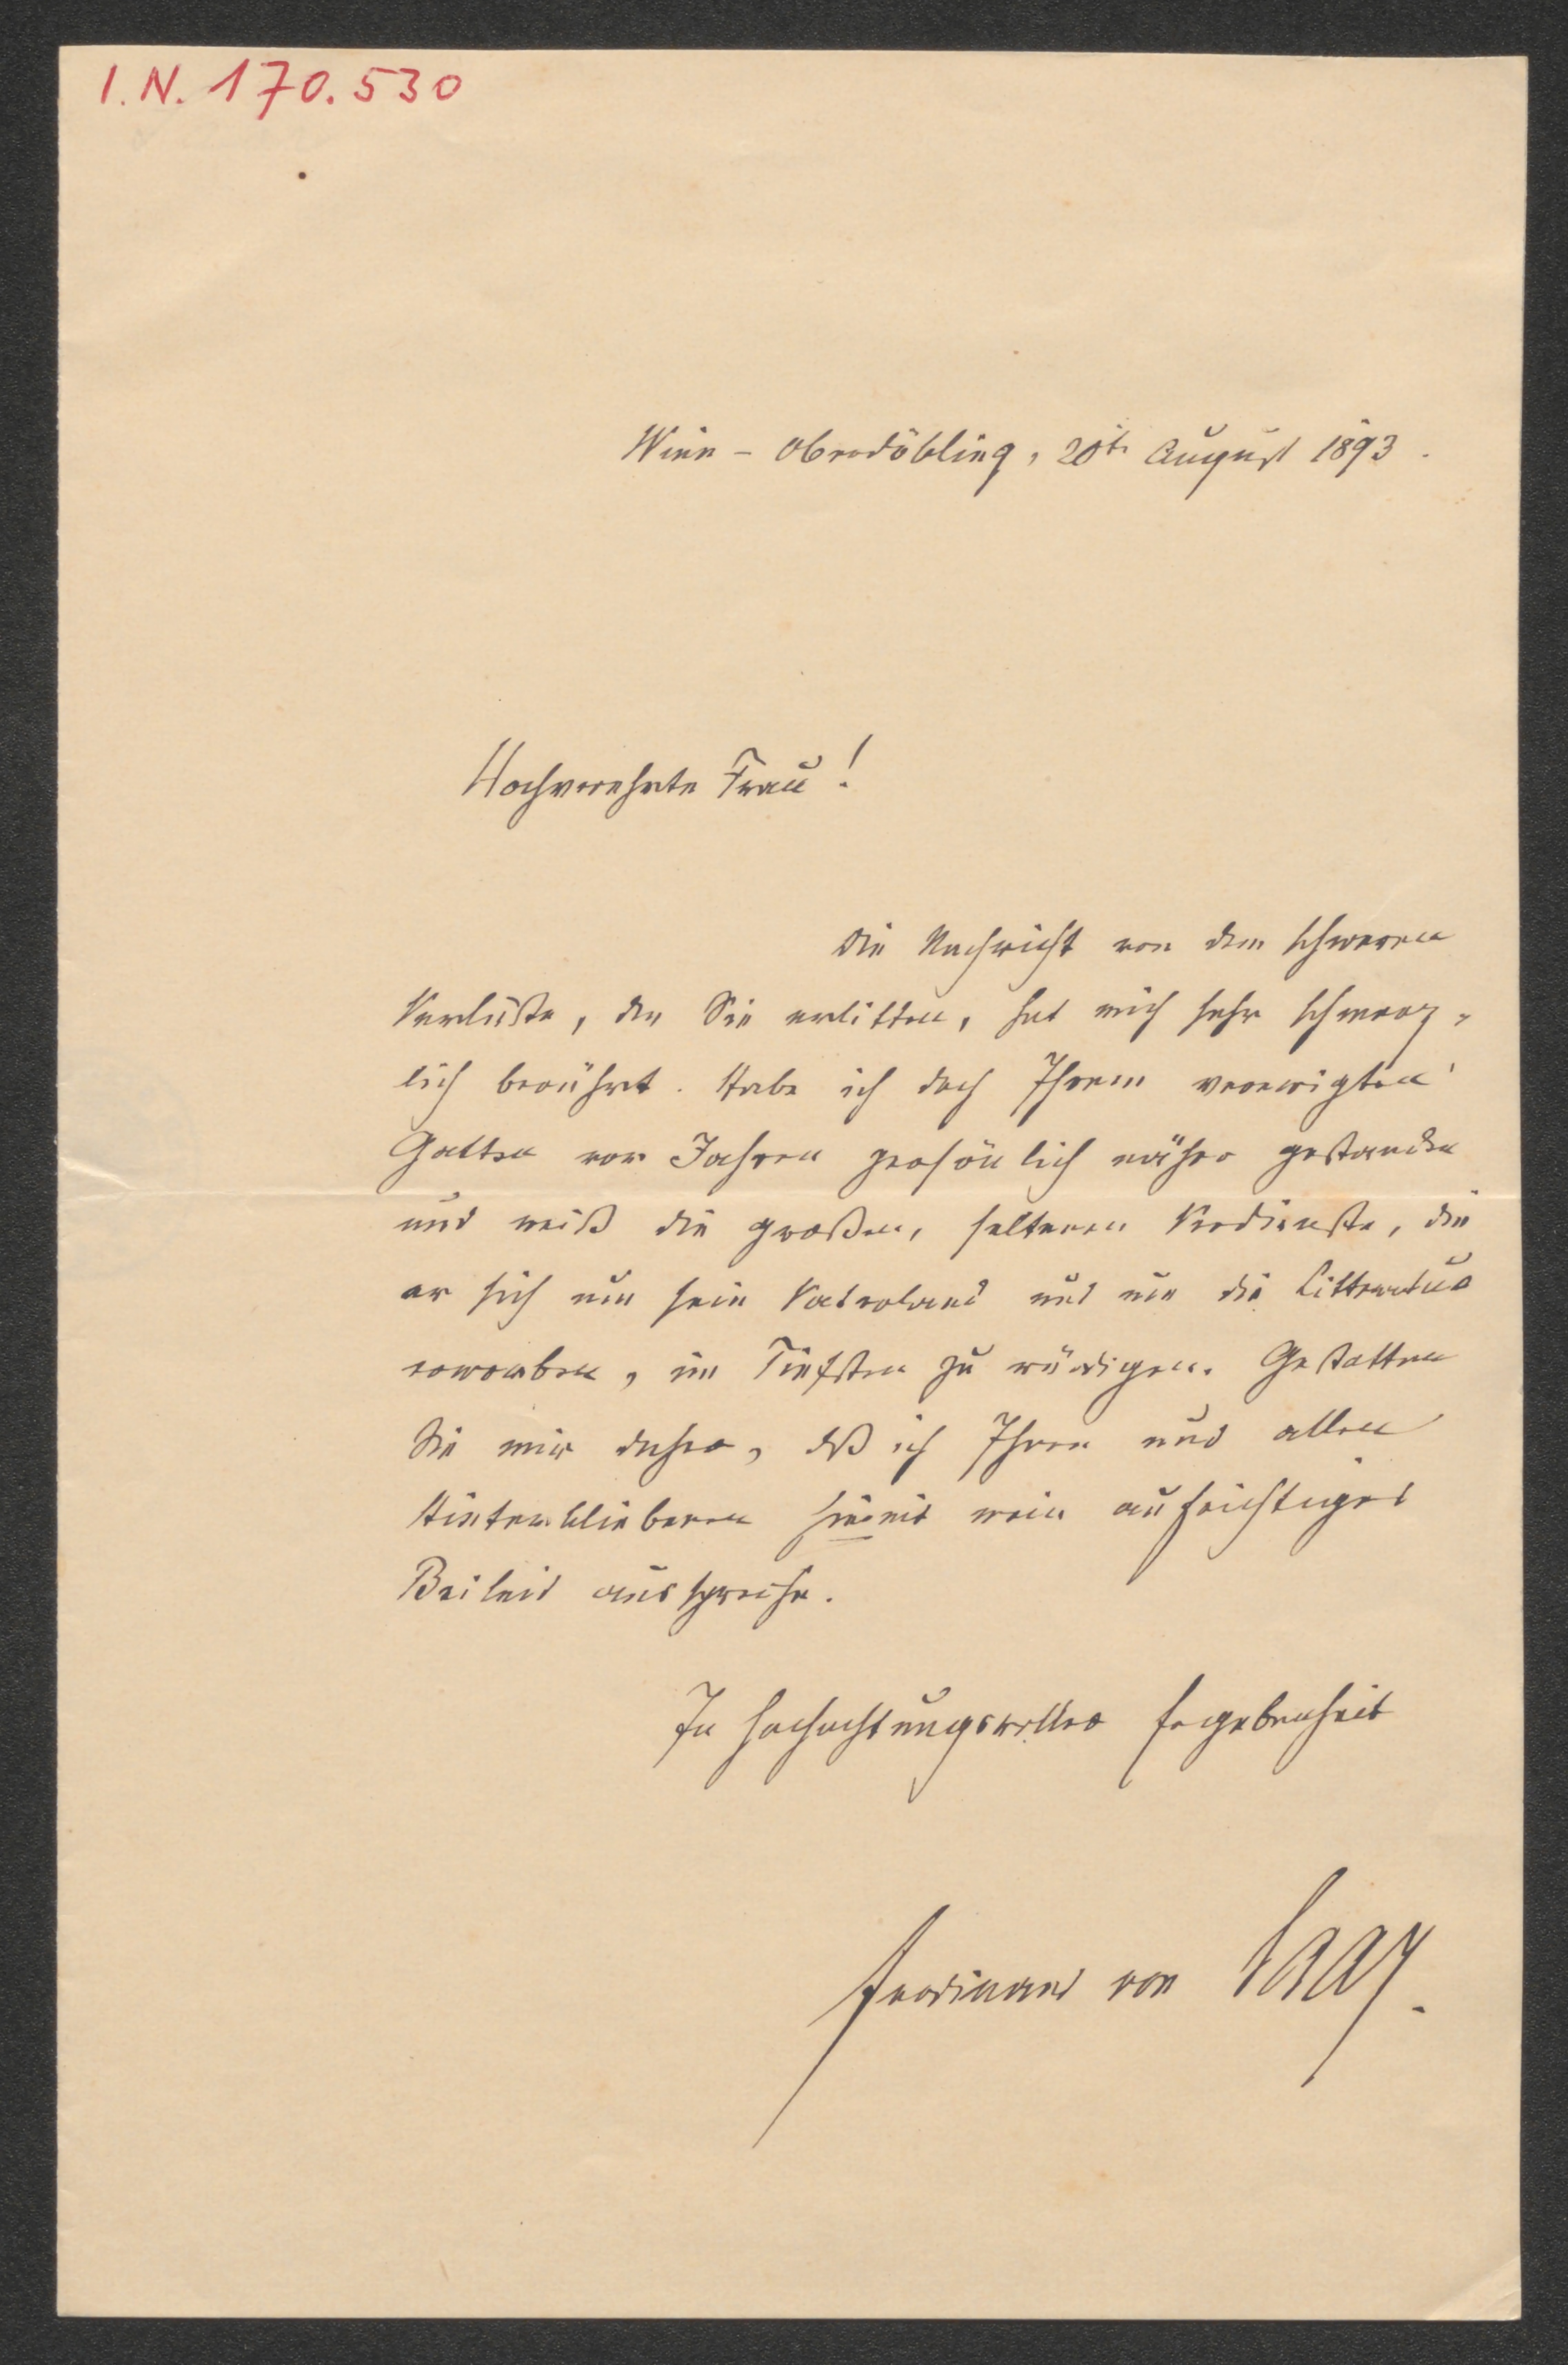 I.N. 170.530
Wien - Oberdöbling, 20t. August 1893.
Hochverehrte Frau!
Die Nachricht von dem schweren
Verluste, den Sie erlitten, hat mich sehr schmerz-
lich berührt. Habe ich doch Ihrem verewigten
Gatten vor Jahren persönlich näher gestanden
und weiß die großen, seltenen Verdienste, die
er sich um sein Vaterland und um die Litteratur
erworben, im Tiefsten zu würdigen. Gestatten
Sie mir daher, daß ich Ihnen und allen
Hinterbliebenen hiemit mein aufrichtiges
Beileid ausspreche.
In hochachtungsvoller Ergebenheit
Ferdinand von Saar.